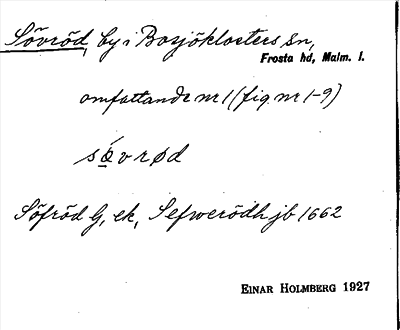 Sövröd, by i Bosjöklosters sn,
Frosta hd, Malm. l.
omfattande nr 1 (fig. nr 1-9)
sǿ̱vrød
Söfröd G, ek, Sefwerödh jb 1662
EINAR HOLMBERG 1927